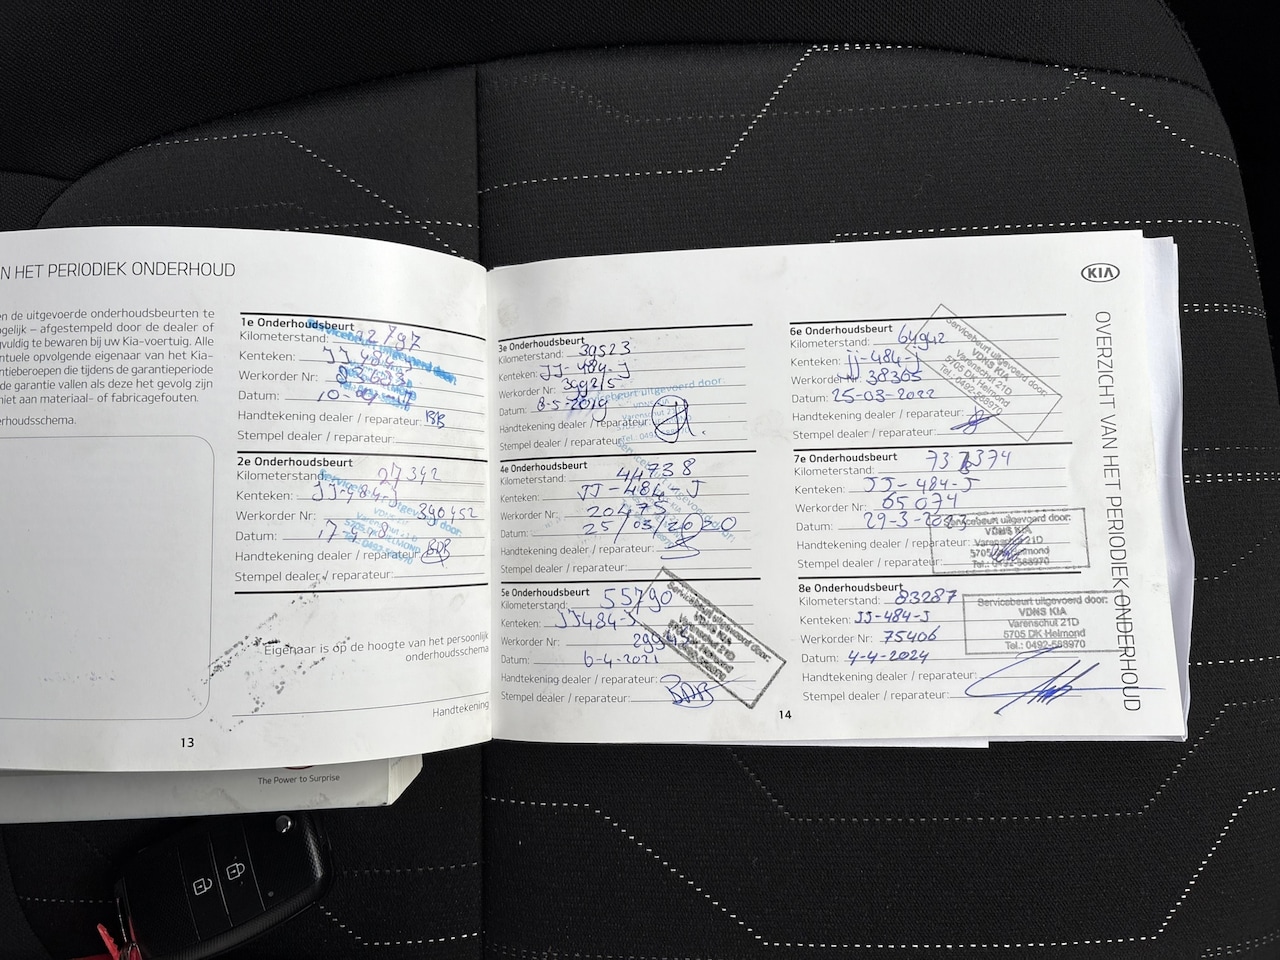 N HET PERIODIEK ONDERHOUD
en de uitgevoerde onderhoudsbeurten te
gelijk – afgestempeld door de dealer of
gvuldig te bewaren bij uw Kia-voertuig. Alle
ntuele opvolgende eigenaar van het Kia-
ntieberoepen die tijdens de garantieperiode
de garantie vallen als deze het gevolg zijn
niet aan materiaal- of fabricagefouten.
erhoudsschema.
1e Onderhoudsbeurt
Kilometerstand:
Kenteken: JJ-484-J
Werkorder Nr:
Datum:
Handtekening dealer / reparateur:
Stempel dealer / reparateur:
2e Onderhoudsbeurt
Kilometerstand: 27342
Kenteken: JJ-484-J
Werkorder Nr: 390452
Datum:
Handtekening dealer / reparateur:
Stempel dealer / reparateur:
Eigenaar is op de hoogte van het persoonlijk
onderhoudsschema
Handtekening
13
The Power to Surprise
3e Onderhoudsbeurt
Kilometerstand: 39523
Kenteken: JJ-484-J
Werkorder Nr:
Datum: 8-5-2019
Handtekening dealer / reparateur:
Stempel dealer / reparateur:
4e Onderhoudsbeurt
Kilometerstand: 44738
Kenteken: JJ-484-J
Werkorder Nr: 20475
Datum: 25/03/2020
Handtekening dealer / reparateur:
Stempel dealer / reparateur:
5e Onderhoudsbeurt
Kilometerstand: 55790
Kenteken: JJ484-J
Werkorder Nr:
Datum: 6-4-2021
Handtekening dealer / reparateur:
Stempel dealer / reparateur:
Servicebeurt uitgevoerd door:
14
KIA
OVERZICHT VAN HET PERIODIEK ONDERHOUD
6e Onderhoudsbeurt
Kilometerstand: 64942
Kenteken: JJ-484-J
Werkorder Nr: 38365
Datum: 25-03-2022
Handtekening dealer / reparateur:
Stempel dealer / reparateur:
Servicebeurt uitgevoerd door:
VDNS KIA
Varenschut 21D
5705 DK Helmond
Tel.: 0492-568970
7e Onderhoudsbeurt
Kilometerstand:
Kenteken: JJ-484-J
Werkorder Nr: 65074
Datum: 29-3-2023
Handtekening dealer / reparateur:
Stempel dealer / reparateur:
Servicebeurt uitgevoerd door:
VDNS KIA
Varenschut 21D
5705 DK Helmond
Tel.: 0492-568970
8e Onderhoudsbeurt
Kilometerstand: 83287
Kenteken: JJ-484-J
Werkorder Nr: 75406
Datum: 4-4-2024
Handtekening dealer / reparateur:
Stempel dealer / reparateur:
Servicebeurt uitgevoerd door:
VDNS KIA
Varenschut 21D
5705 DK Helmond
Tel.: 0492-568970